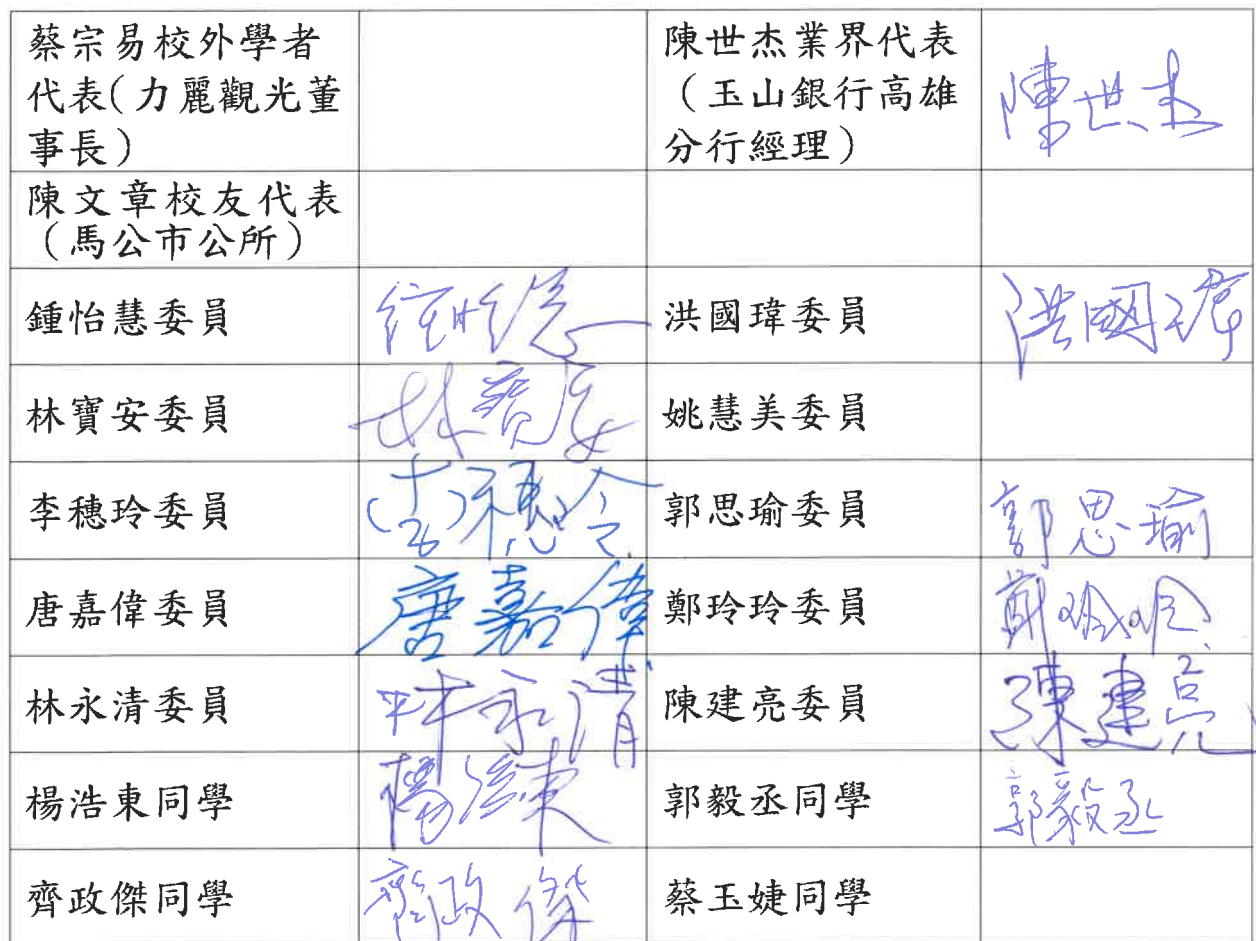 蔡宗易校外學者
代表(力麗觀光董
事長)
陳世杰業界代表
(玉山銀行高雄
分行經理)
陳世杰
陳文章校友代表
(馬公市公所)
鍾怡慧委員
鍾怡慧
洪國瑋委員
洪國瑋
林寶安委員
林寶安
姚慧美委員
李穗玲委員
李穗玲
郭思瑜委員
郭思瑜
唐嘉偉委員
唐嘉偉
鄭玲玲委員
鄭玲玲
林永清委員
林永清
陳建亮委員
陳建亮
楊浩東同學
楊浩東
郭毅丞同學
郭毅丞
齊政傑同學
齊政傑
蔡玉婕同學